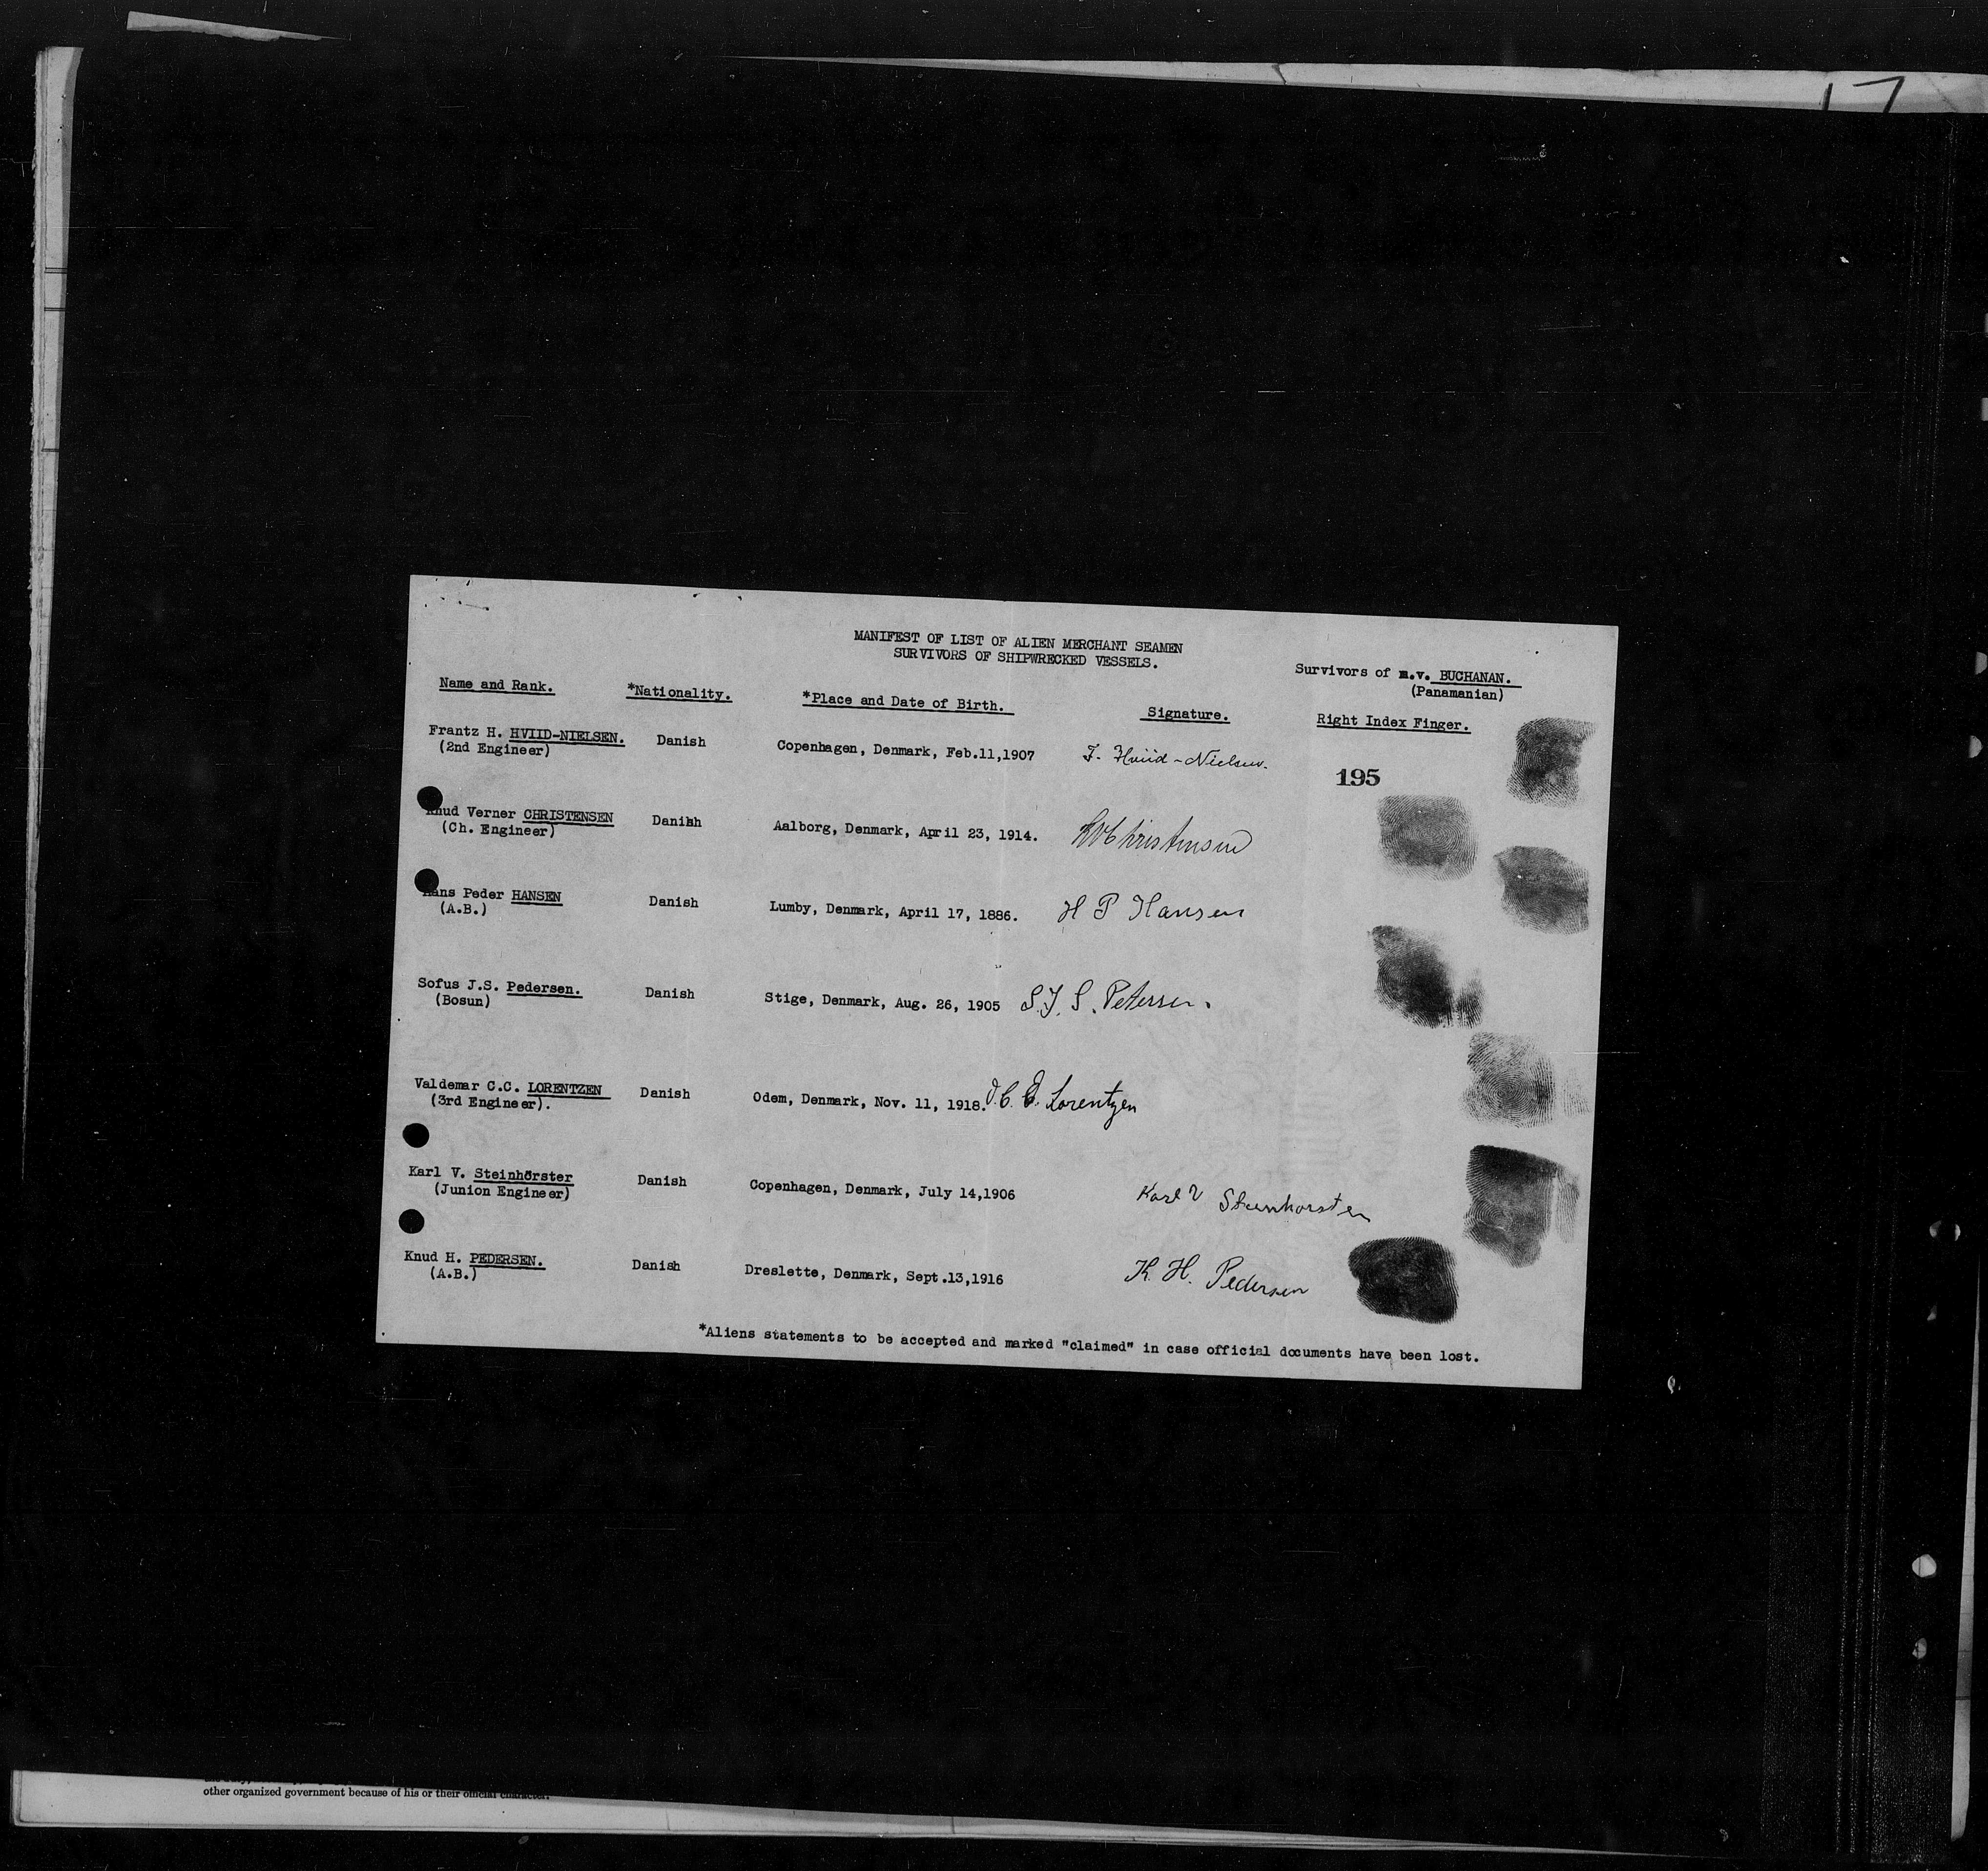 17
MANIFEST OF LIST OF ALIEN MERCHANT SEAMEN
SURVIVORS OF SHIPWRECKED VESSELS.
Survivors of m.v. BUCHANAN.
(Panamanian)
Name and Rank. *Nationality. *Place and Date of Birth. Signature. Right Index Finger.
Frantz H. HVIID-NIELSEN. Danish Copenhagen, Denmark, Feb.11,1907 F. Hviid-Nielsen.
(2nd Engineer)
195
Knud Verner CHRISTENSEN Danish Aalborg, Denmark, April 23, 1914. KVChristensen
(Ch. Engineer)
Hans Peder HANSEN Danish Lumby, Denmark, April 17, 1886. H P Hansen
(A.B.)
Sofus J.S. Pedersen. Danish Stige, Denmark, Aug. 26, 1905 S.J.S. Petersen.
(Bosun)
Valdemar C.C. LORENTZEN Danish Odem, Denmark, Nov. 11, 1918. V.C.C. Lorentzen
(3rd Engineer).
Karl V. Steinhörster Danish Copenhagen, Denmark, July 14,1906 Karl V
(Junion Engineer)
Knud H. PEDERSEN. Danish Dreslette, Denmark, Sept.13,1916 K. H. Pedersen
(A.B.)
*Aliens statements to be accepted and marked "claimed" in case official documents have been lost.
other organized government because of his or their official character.